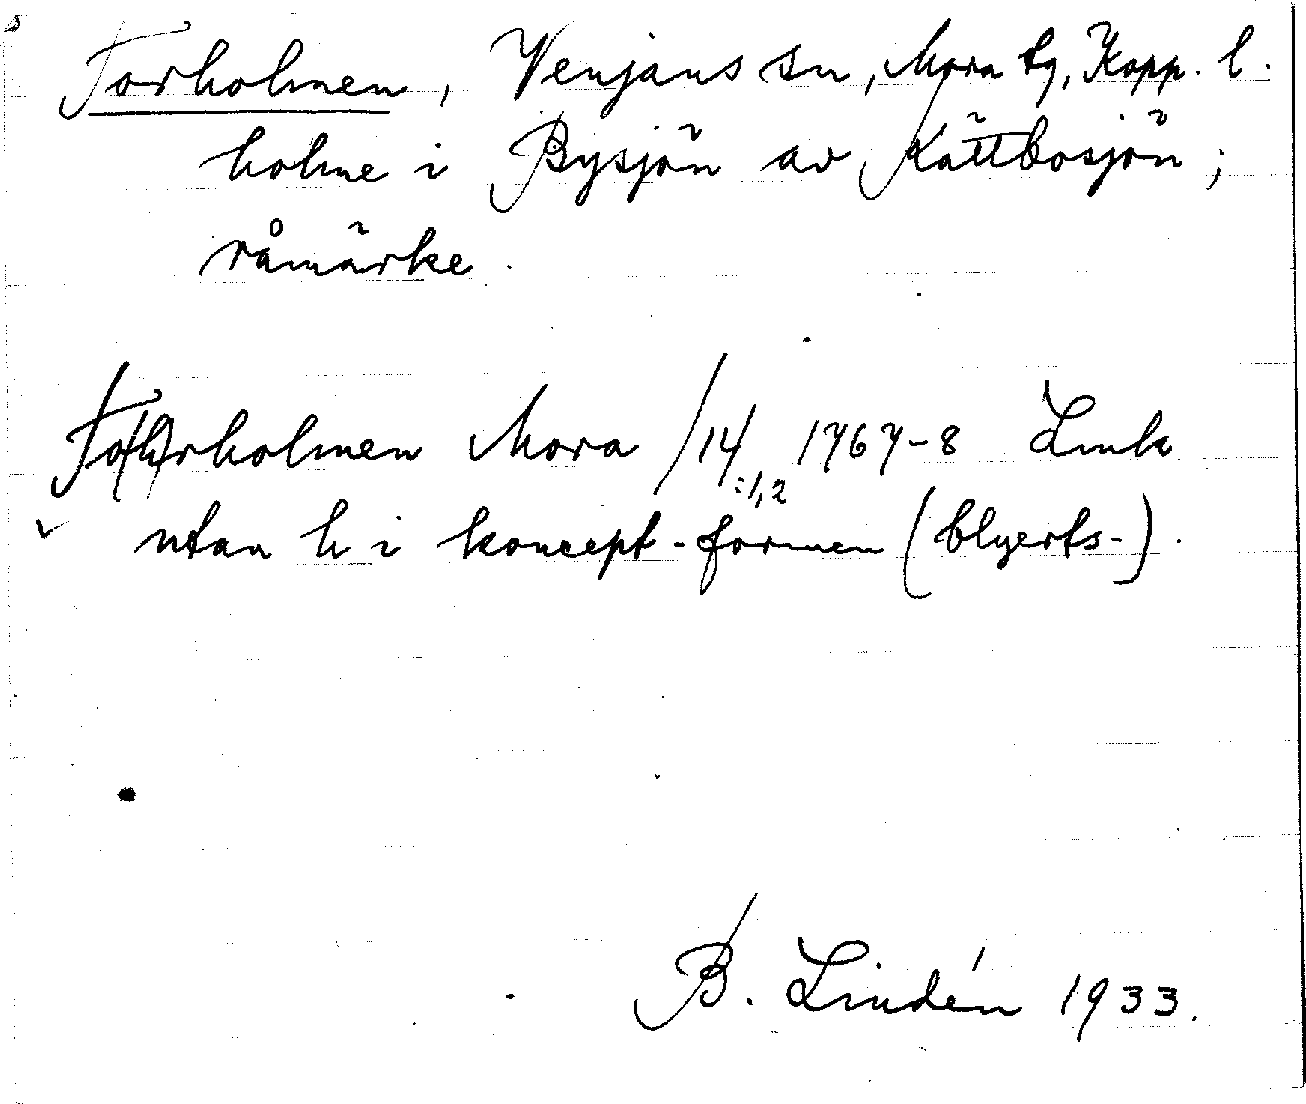 Torholmen, Venjans sn, Mora tg, Kopp. l.
holme i Bysjön av Kättbosjön;
råmärke.
To(h)rholmen Mora /14/:1,2 1767-8 Lmk
utan h i koncept-formen (blyerts-).
B. Lindén 1933.